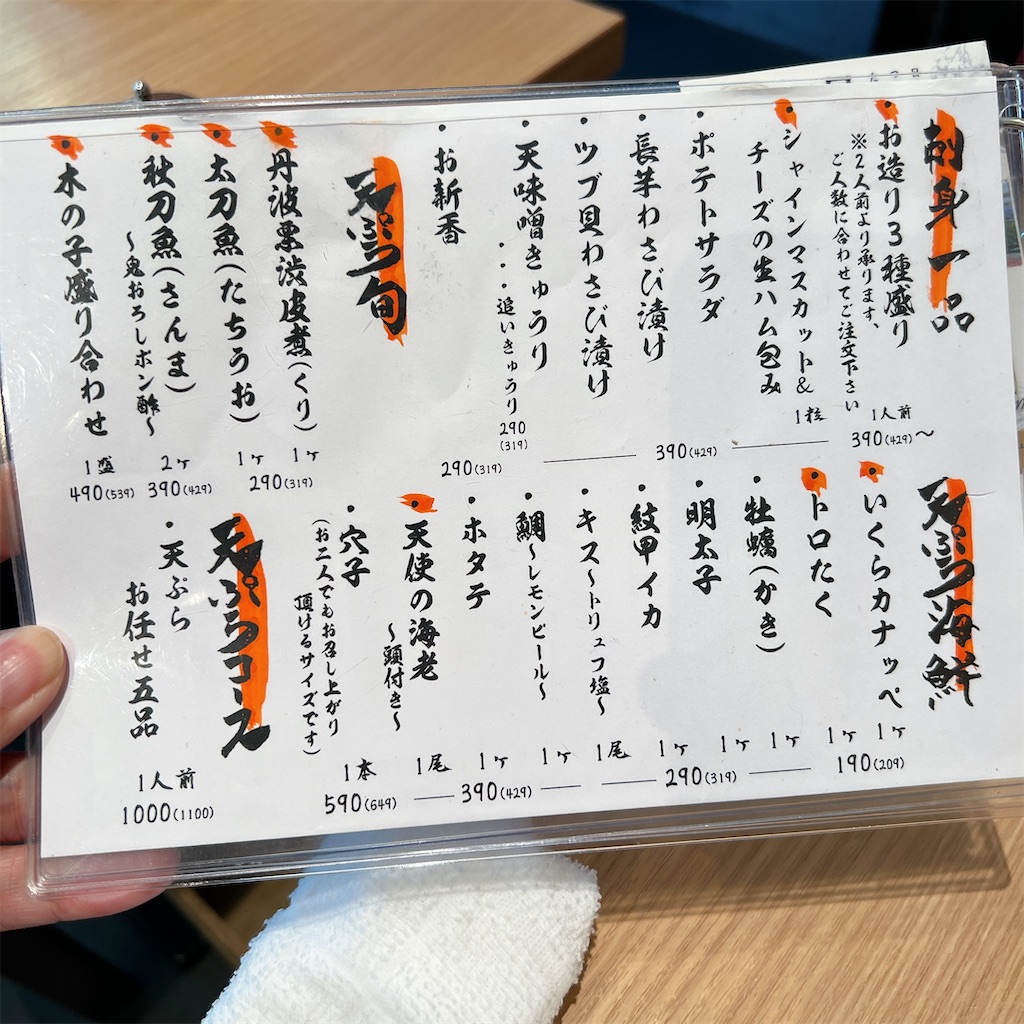 刺身一品
・お造り3種盛り
※2人前より承ります、
ご人数に合わせてご注文下さい
1人前
390(429)〜
・シャインマスカット&
チーズの生ハム包み
1粒
・ポテトサラダ
・長芋わさび漬け
・ツブ貝わさび漬け
390(429)
・天味噌きゅうり
・・・追いきゅうり 290
(319)
・お新香
290(319)
天ぷら旬
・丹波栗渋皮煮(くり)
1ヶ
・太刀魚(たちうお)
1ヶ
290(319)
・秋刀魚(さんま)
〜鬼おろしポン酢〜
2ヶ
390(429)
・木の子盛り合わせ
1盛
490(539)
天ぷら海鮮
・いくらカナッペ
1ヶ
・トロたく
1ヶ
190(209)
・牡蠣(かき)
1ヶ
・明太子
1ヶ
・紋甲イカ
1ヶ
290(319)
・キス〜トリュフ塩〜
1尾
・鯛〜レモンピール〜
1ヶ
・ホタテ
1ヶ
・天使の海老
〜頭付き〜
1尾
390(429)
・穴子
(お二人でもお召し上がり
頂けるサイズです)
1本
590(649)
天ぷらコース
・天ぷら
お任せ五品
1人前
1000(1100)